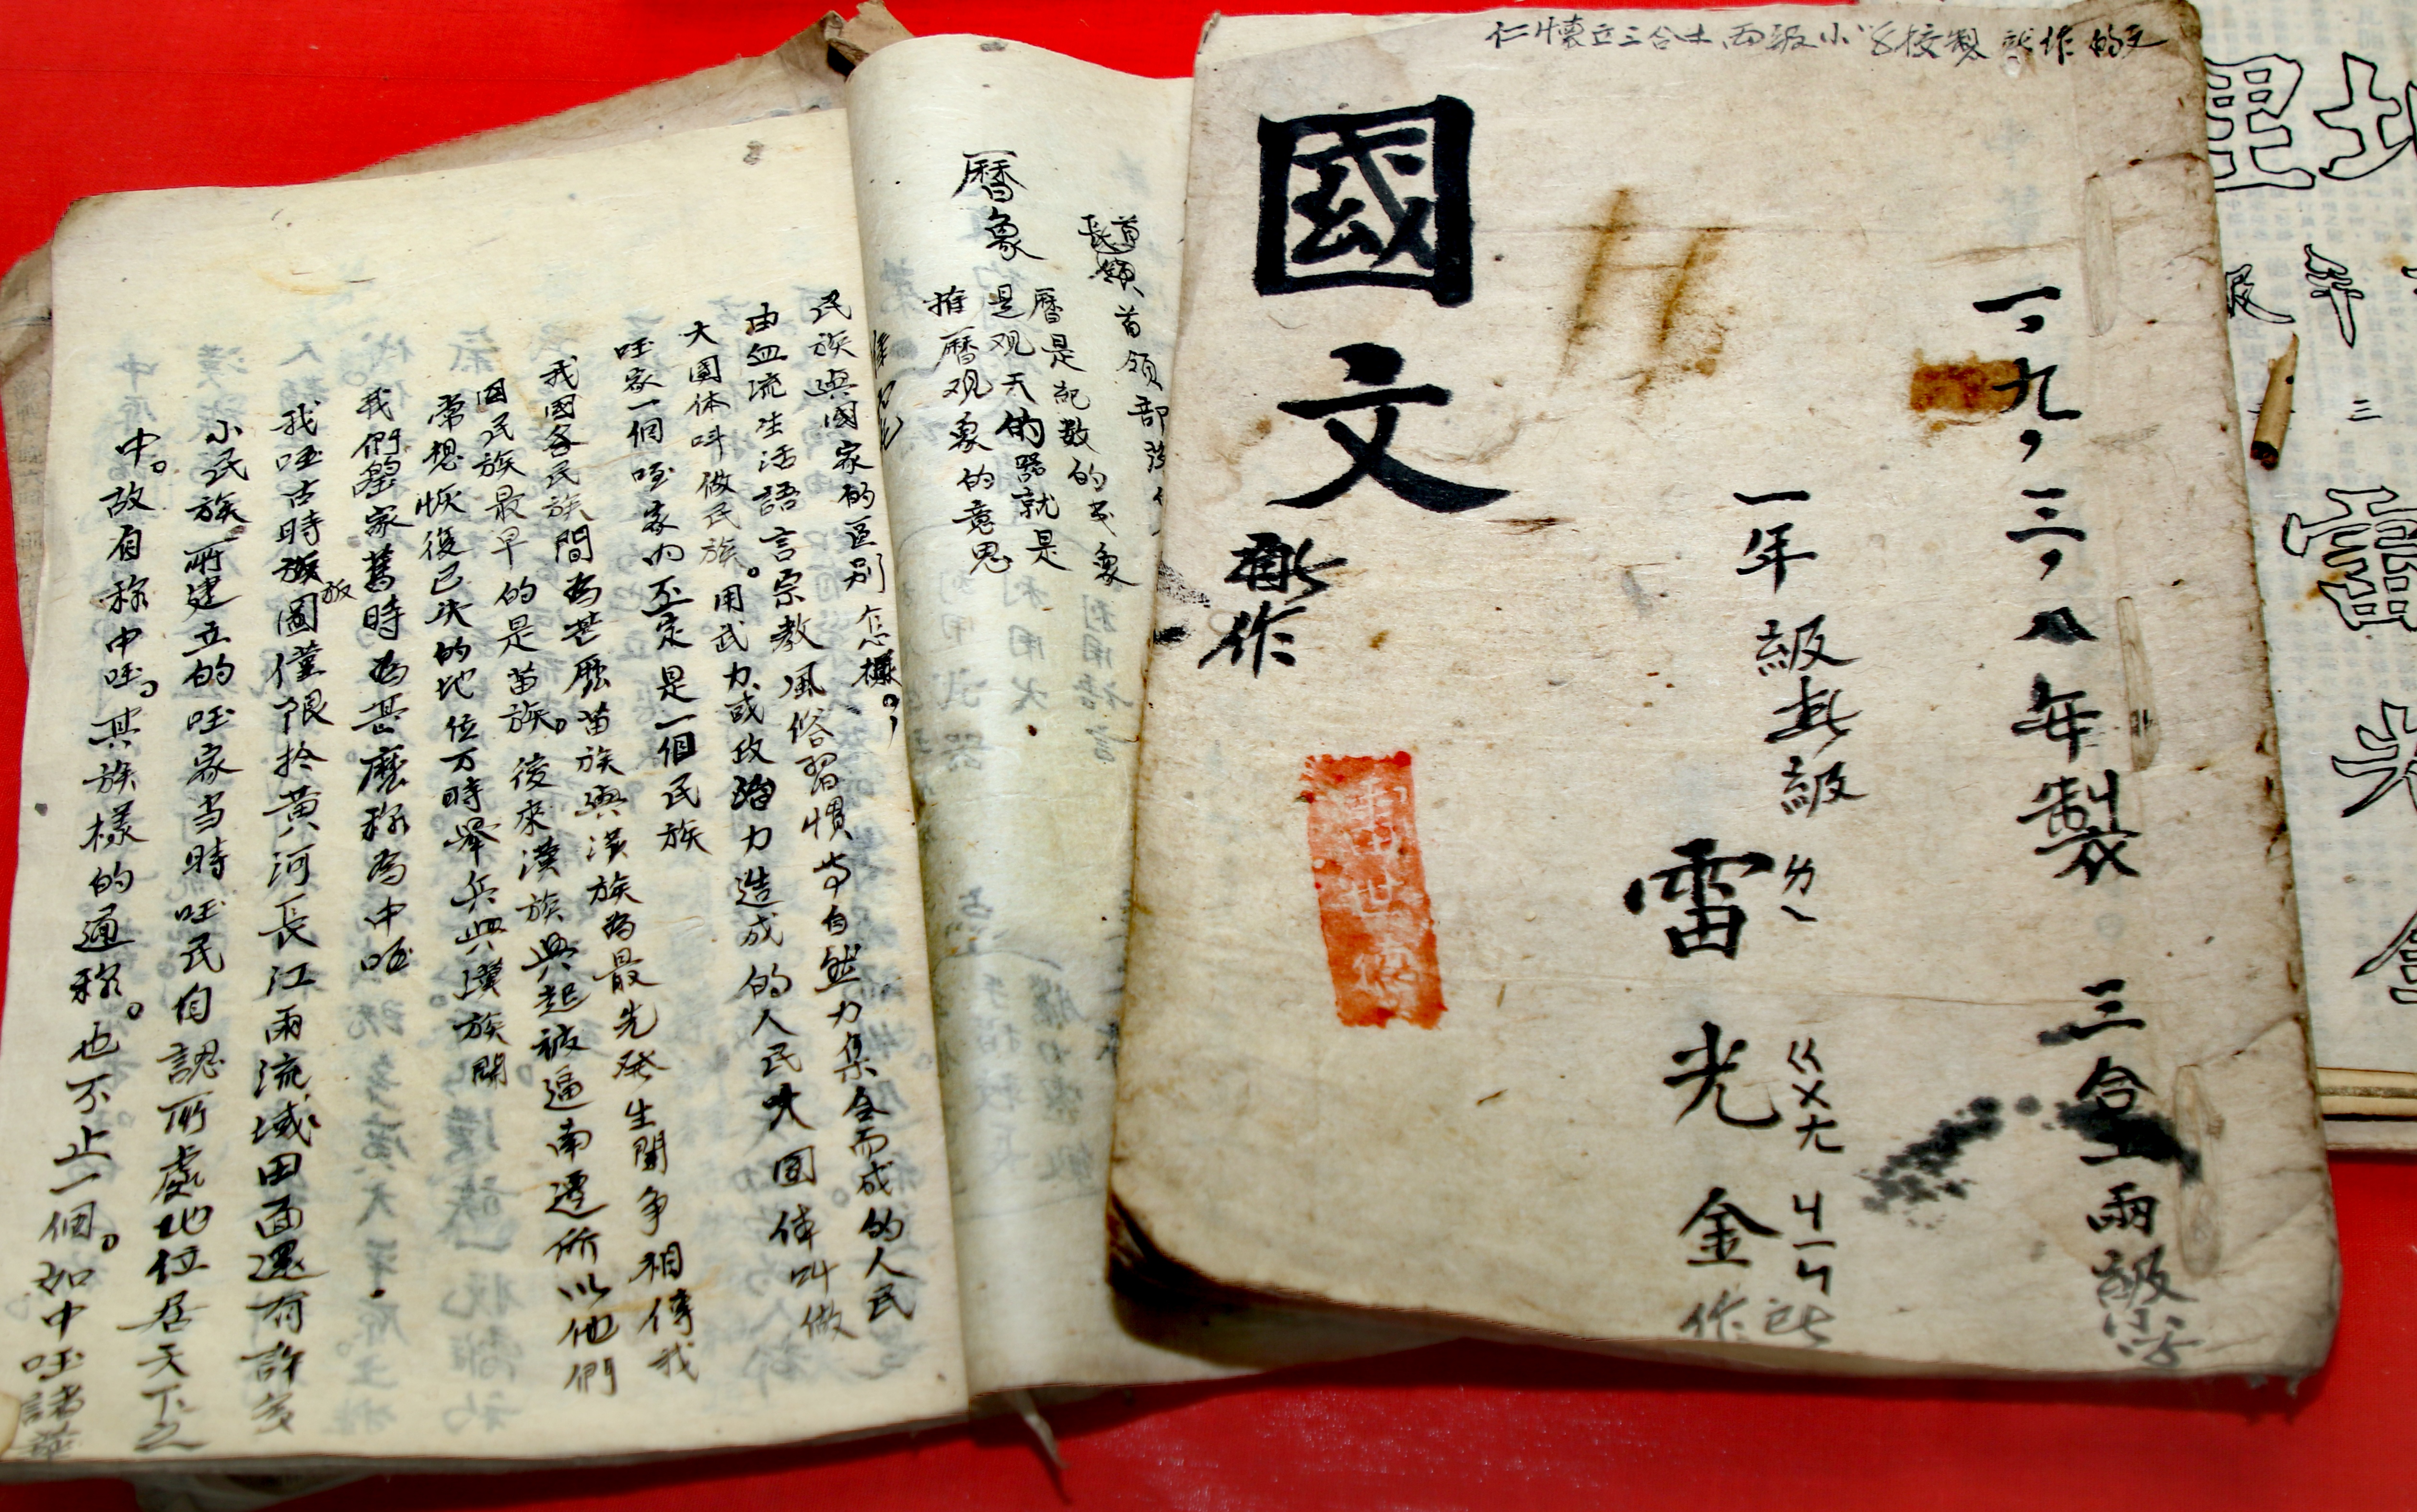 仁懷立三合土兩級小学校製
國文
一九三八年製 三合土兩級小学
一年級 級
雷光金
ㄌㄟ ㄍㄨㄤ ㄐㄧㄣ
作
首領 首領部
曆象 曆是紀数的书象
是观天的器就是
推曆观象的意思
民族與國家的区别怎樣。
由血流生活語言宗教風俗習慣等自然力集合而成的人民
大團体叫做民族。用武力或政治力造成的人民大团体叫做
国家一個国家内不一定是一個民族
我國各民族間為甚麼苗族與漢族為最先発生鬪争相傳我
国民族最早的是苗族。後來漢族興起被逼南遷所以他們
常想恢復已失的地位万時舉兵與漢族鬪
我們國家舊時為甚麼称為中国
我国古時族圖僅限於黄河長江兩流域四面還有許多
小民族所建立的国家当時国民自認所處地位居天下之
中。故自称中国。其族樣的通称。也不止一個。如中国諸華
地理
年級
三
雷光金